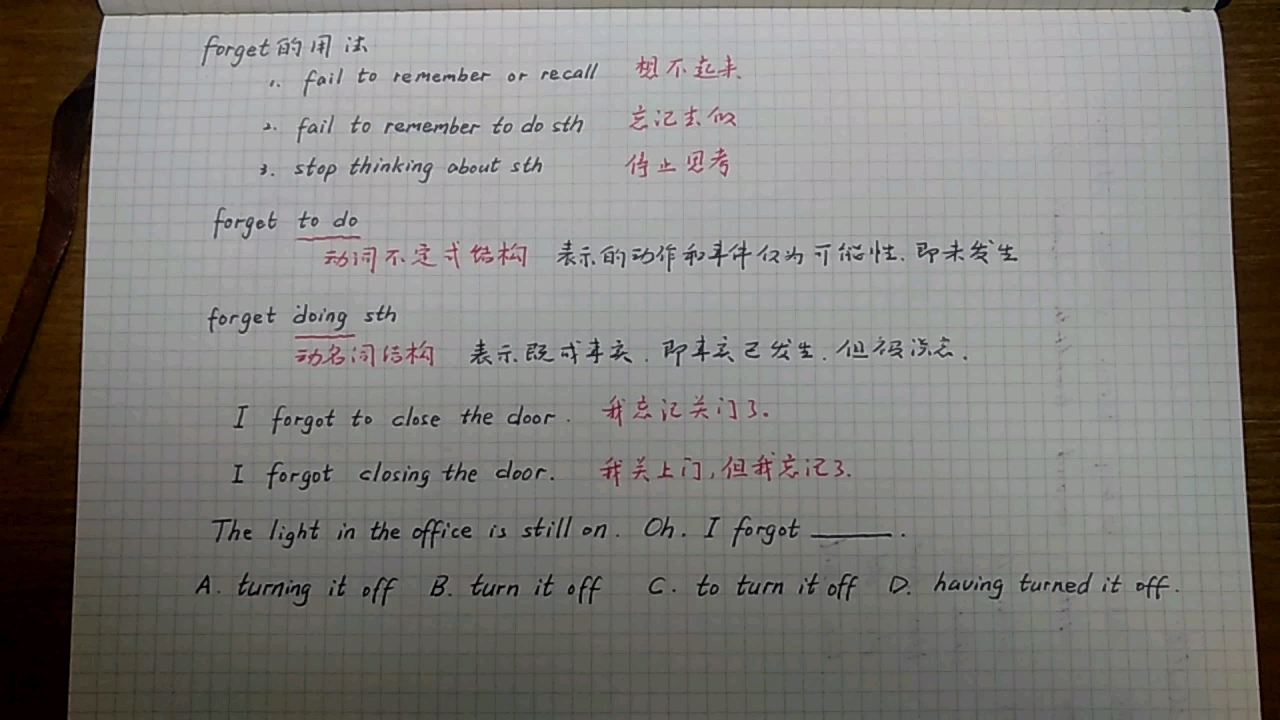 forget的用法
1. fail to remember or recall 想不起来.
2. fail to remember to do sth 忘记去做
3. stop thinking about sth 停止思考
forget to do
动词不定式结构 表示的动作和事件仅为可能性.即未发生
forget doing sth
动名词结构 表示既成事实.即事实已发生.但被淡忘.
I forgot to close the door. 我忘记关门了.
I forgot closing the door. 我关上门,但我忘记了.
The light in the office is still on. Oh. I forgot ______.
A. turning it off B. turn it off C. to turn it off D. having turned it off.